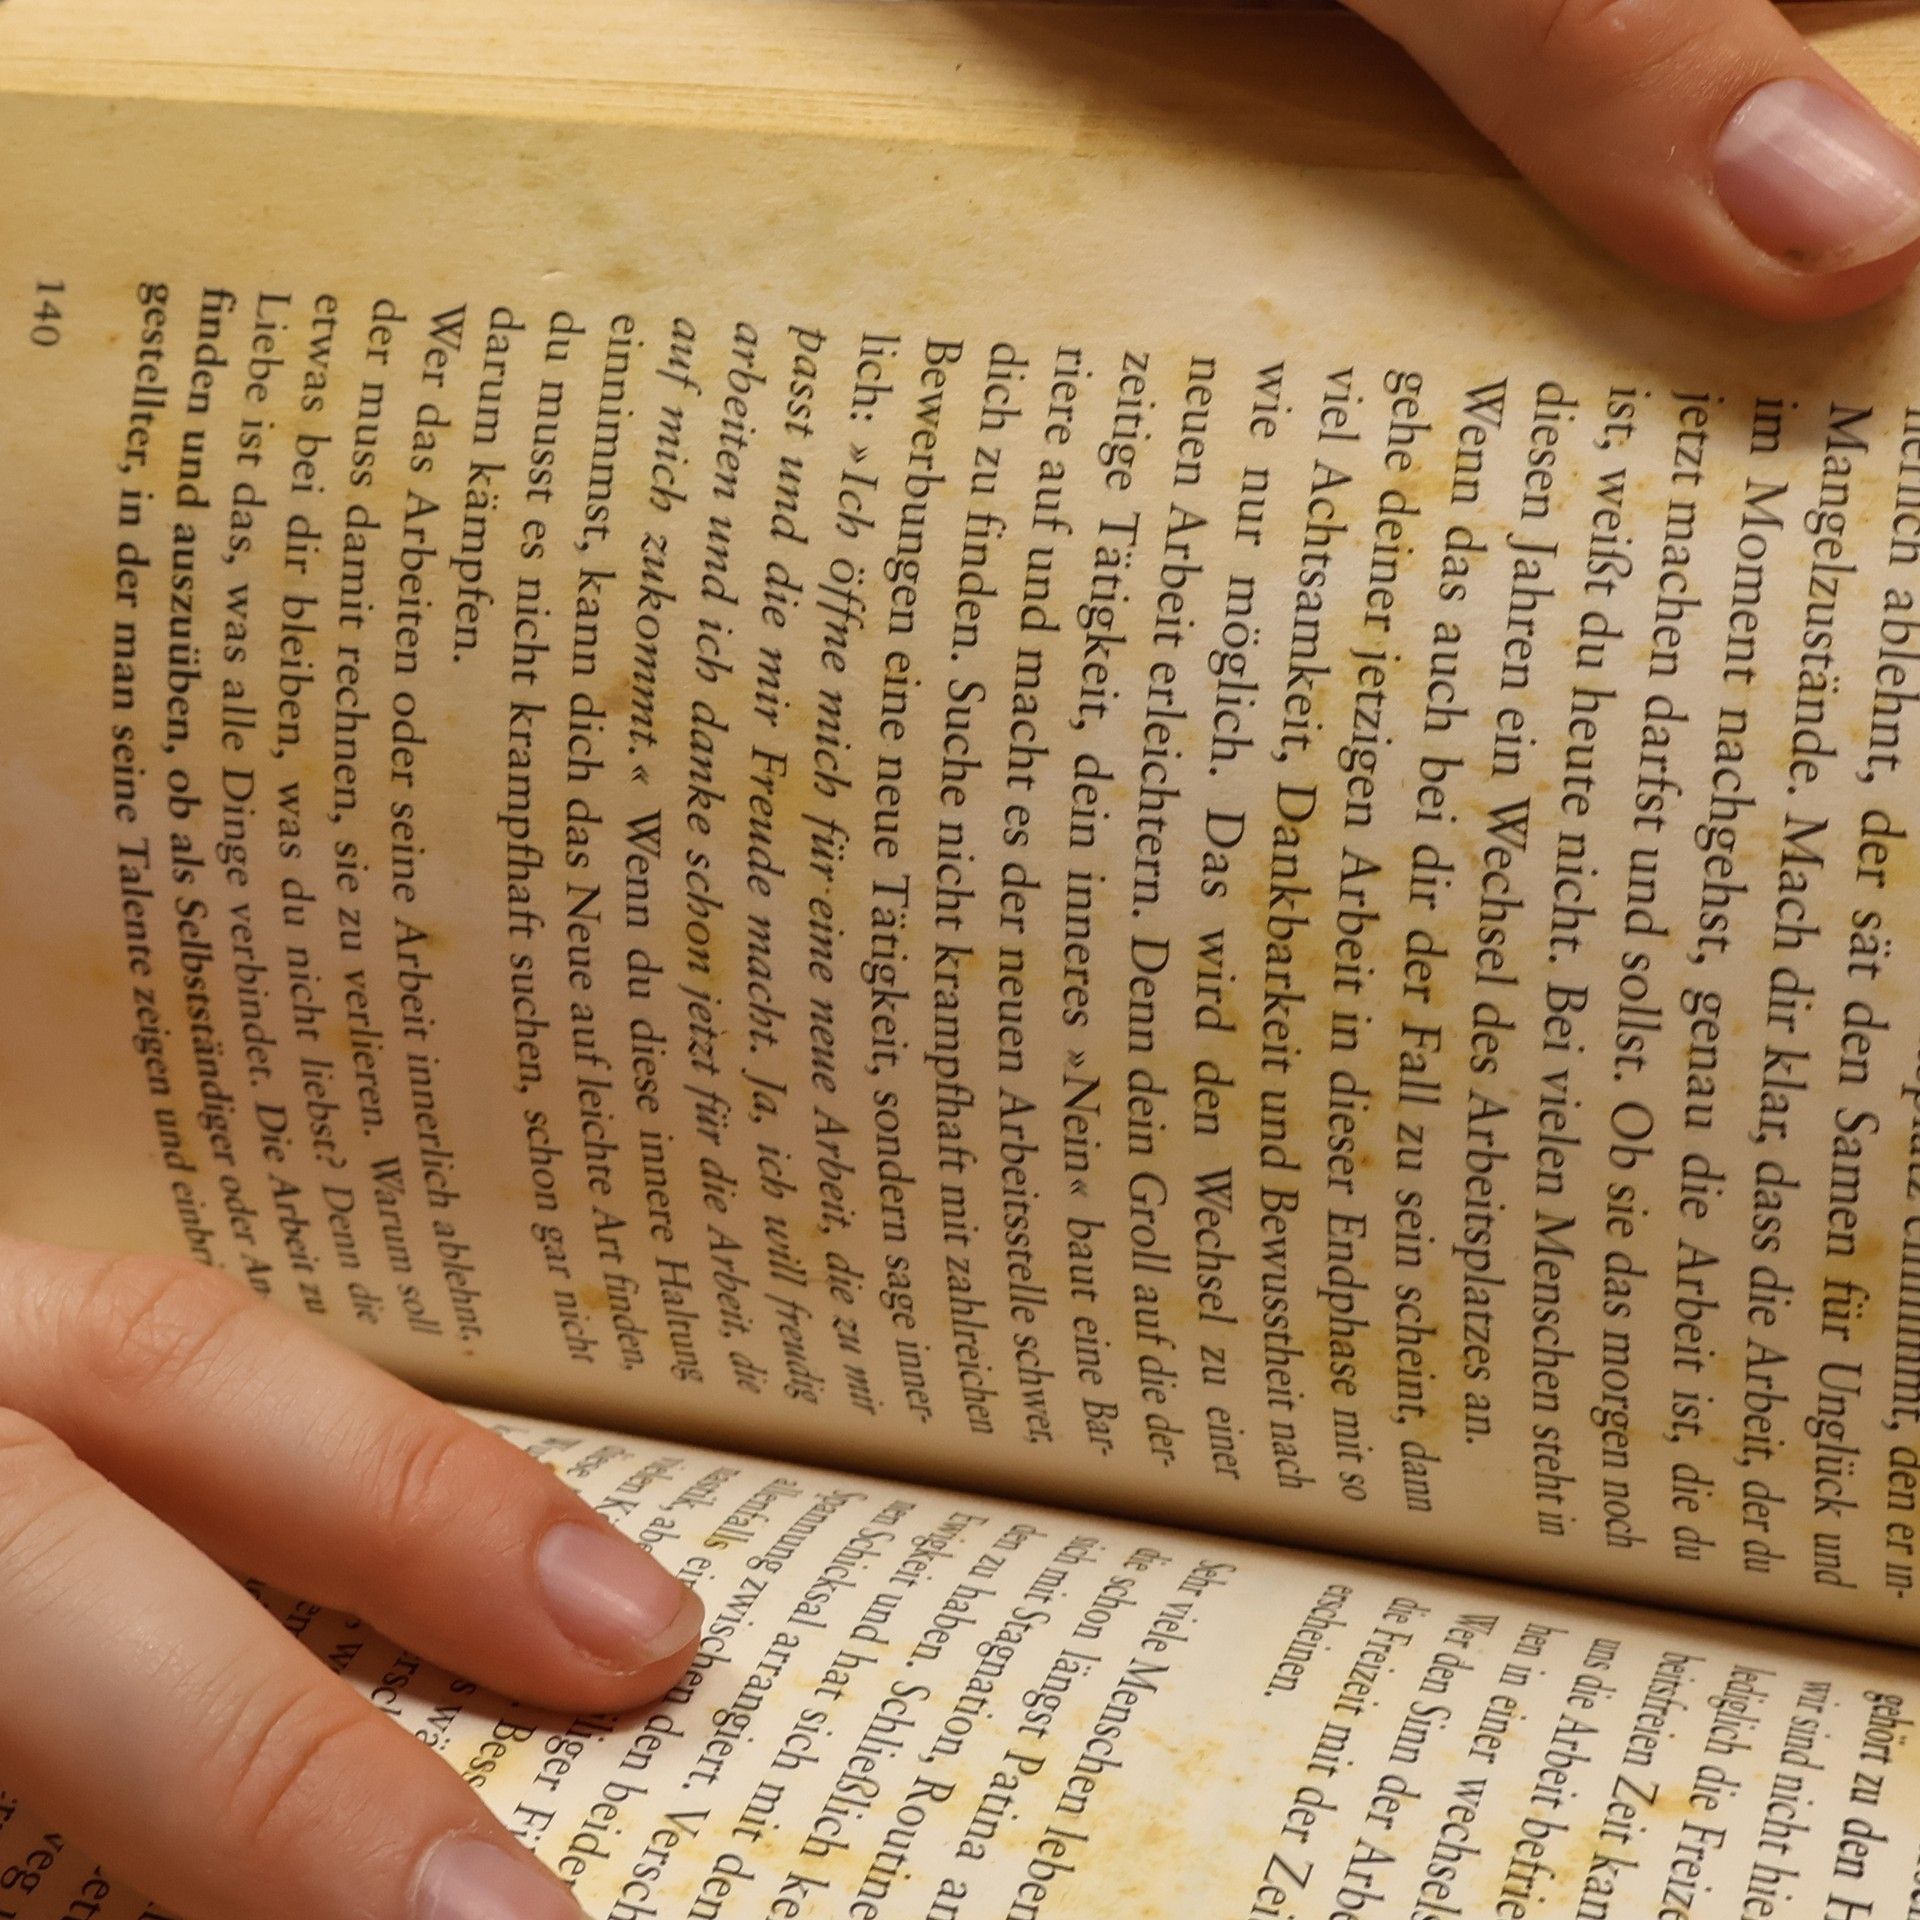 nerlich ablehnt, der sät den Samen für Unglück und
Mangelzustände. Mach dir klar, dass die Arbeit, der du
im Moment nachgehst, genau die Arbeit ist, die du
jetzt machen darfst und sollst. Ob sie das morgen noch
ist, weißt du heute nicht. Bei vielen Menschen steht in
diesen Jahren ein Wechsel des Arbeitsplatzes an.
Wenn das auch bei dir der Fall zu sein scheint, dann
gehe deiner jetzigen Arbeit in dieser Endphase mit so
viel Achtsamkeit, Dankbarkeit und Bewusstheit nach
wie nur möglich. Das wird den Wechsel zu einer
neuen Arbeit erleichtern. Denn dein Groll auf die der-
zeitige Tätigkeit, dein inneres »Nein« baut eine Bar-
riere auf und macht es der neuen Arbeitsstelle schwer,
dich zu finden. Suche nicht krampfhaft mit zahlreichen
Bewerbungen eine neue Tätigkeit, sondern sage inner-
lich: »Ich öffne mich für eine neue Arbeit, die zu mir
passt und die mir Freude macht. Ja, ich will freudig
arbeiten und ich danke schon jetzt für die Arbeit, die
auf mich zukommt.« Wenn du diese innere Haltung
einnimmst, kann dich das Neue auf leichte Art finden,
du musst es nicht krampfhaft suchen, schon gar nicht
darum kämpfen.
Wer das Arbeiten oder seine Arbeit innerlich ablehnt,
der muss damit rechnen, sie zu verlieren. Warum soll
etwas bei dir bleiben, was du nicht liebst? Denn die
Liebe ist das, was alle Dinge verbindet. Die Arbeit zu
finden und auszuüben, ob als Selbstständiger oder An
gestellter, in der man seine Talente zeigen und einbri
140
gehört zu den
wir sind nicht hie
lediglich die Freize
beitsfreien Zeit kan
uns die Arbeit befrie
hen in einer wechsel
Wer den Sinn der Arbe
die Freizeit mit der Zei
erscheinen.
Sehr viele Menschen leben
die schon längst Patina an
sich mit Stagnation, Routine
den zu haben. Schließlich ke
Ewigkeit und hat sich mit den
nen Schicksal arrangiert. Versch
Spannung zwischen den beiden
allenfalls